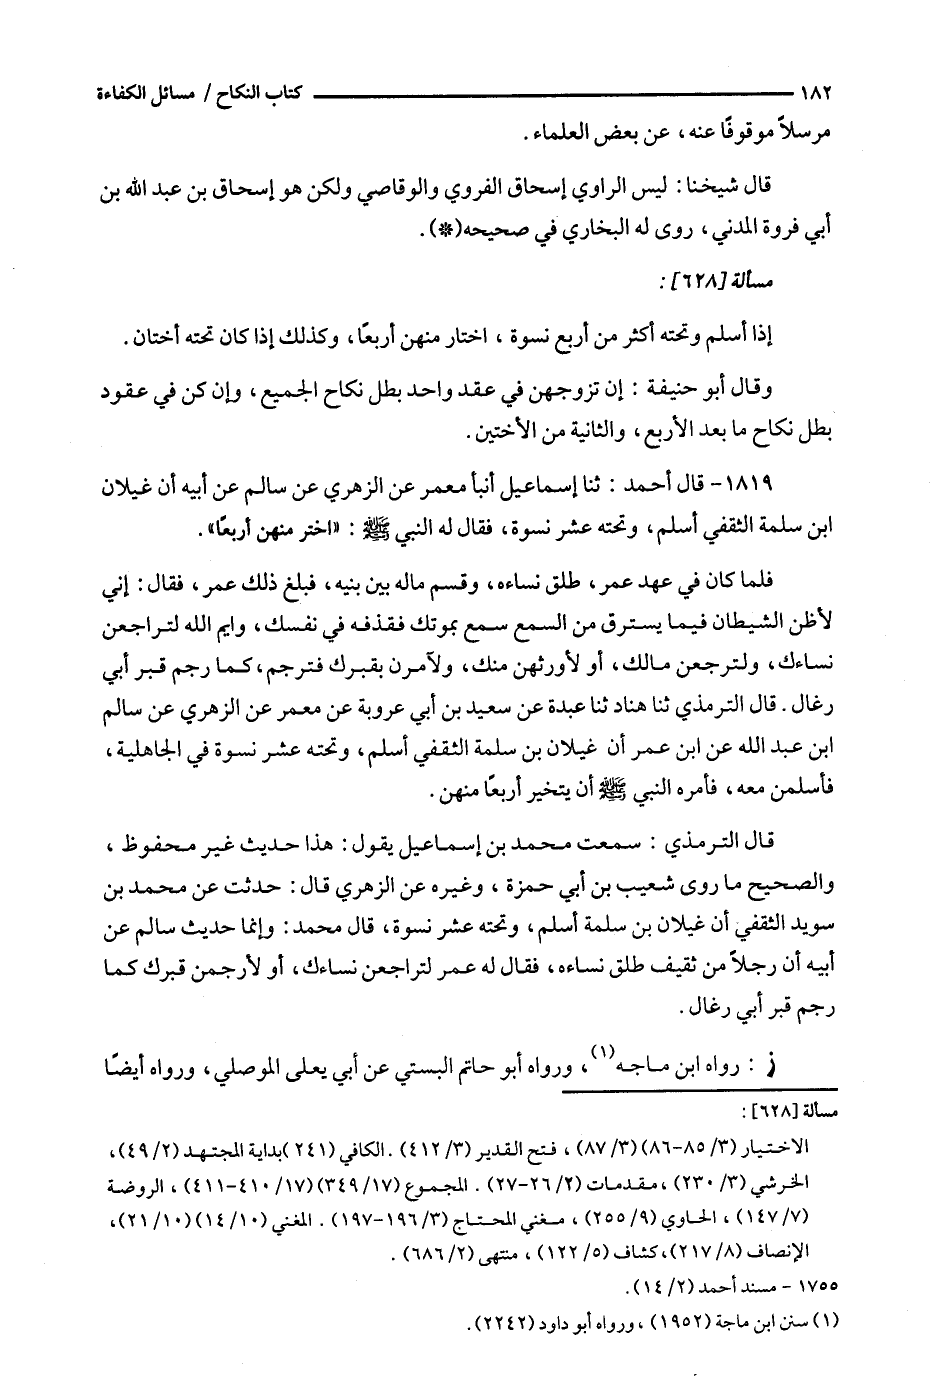 ١٨٢ ــــــــــــــــ كتاب النكاح / مسائل الكفاءة
مرسلاً موقوفًا عنه، عن بعض العلماء.
قال شيخنا: ليس الراوي إسحاق الفروي والوقاصي ولكن هو إسحاق بن عبد الله بن
أبي فروة المدني، روى له البخاري في صحيحه(*).
مسألة [٦٢٨]:
إذا أسلم وتحته أكثر من أربع نسوة، اختار منهن أربعًا، وكذلك إذا كان تحته أختان.
وقال أبو حنيفة: إن تزوجهن في عقد واحد بطل نكاح الجميع، وإن كن في عقود
بطل نكاح ما بعد الأربع، والثانية من الأختين.
١٨١٩- قال أحمد: ثنا إسماعيل أنبأ معمر عن الزهري عن سالم عن أبيه أن غيلان
ابن سلمة الثقفي أسلم، وتحته عشر نسوة، فقال له النبي ﷺ: «اختر منهن أربعًا».
فلما كان في عهد عمر، طلق نساءه، وقسم ماله بين بنيه، فبلغ ذلك عمر، فقال: إني
لأظن الشيطان فيما يسترق من السمع سمع بموتك فقذفه في نفسك، وايم الله لتراجعن
نساءك، ولترجعن مالك، أو لأورثهن منك، ولآمرن بقبرك فترجم، كما رجم قبر أبي
رغال. قال الترمذي ثنا هناد ثنا عبدة عن سعيد بن أبي عروبة عن معمر عن الزهري عن سالم
ابن عبد الله عن ابن عمر أن غيلان بن سلمة الثقفي أسلم، وتحته عشر نسوة في الجاهلية،
فأسلمن معه، فأمره النبي ﷺ أن يتخير أربعًا منهن.
قال الترمذي: سمعت محمد بن إسماعيل يقول: هذا حديث غير محفوظ،
والصحيح ما روى شعيب بن أبي حمزة، وغيره عن الزهري قال: حدثت عن محمد بن
سويد الثقفي أن غيلان بن سلمة أسلم، وتحته عشر نسوة، قال محمد: وإنما حديث سالم عن
أبيه أن رجلاً من ثقيف طلق نساءه، فقال له عمر لتراجعن نساءك، أو لأرجمن قبرك كما
رجم قبر أبي رغال.
ز: رواه ابن ماجه(١)، ورواه أبو حاتم البستي عن أبي يعلى الموصلي، ورواه أيضًا
مسألة [٦٢٨]:
الاختيار (٣/ ٨٥-٨٦)(٣/ ٨٧)، فتح القدير (٣/ ٤١٢). الكافي (٢٤١)بداية المجتهد (٢/ ٤٩)،
الخرشي (٣/ ٢٣٠)، مقدمات (٢/ ٢٦-٢٧). المجموع (١٧/ ٣٤٩)(١٧/ ٤١٠-٤١١)، الروضة
(٧/ ١٤٧)، الحاوي (٩/ ٢٥٥)، مغني المحتاج (٣/ ١٩٦-١٩٧). المغني (١٠/ ١٤)(١٠/ ٢١)،
الإنصاف (٨/ ٢١٧)، كشاف (٥/ ١٢٢)، منتهى (٢/ ٦٨٦).
١٧٥٥ - مسند أحمد (٢/ ١٤).
(١) سنن ابن ماجة (١٩٥٢)، ورواه أبو داود (٢٢٤٢).